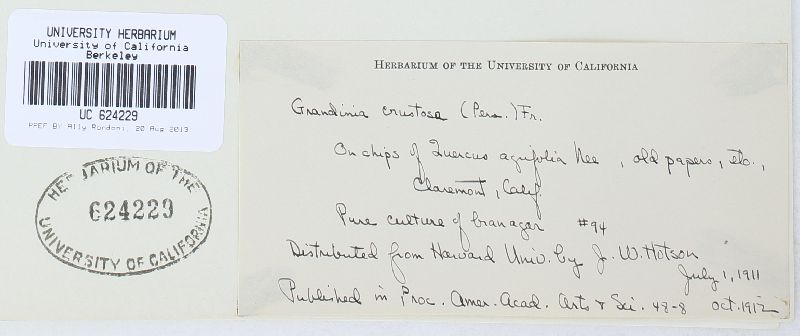 UNIVERSITY HERBARIUM
University of California
Berkeley
UC 624229
PREP BY Ally Rondoni, 20 Aug 2013
HERBARIUM OF THE
624229
UNIVERSITY OF CALIFORNIA
HERBARIUM OF THE UNIVERSITY OF CALIFORNIA
Grandinia crustosa (Pers.) Fr.
On chips of Quercus agrifolia Nee, old papers, etc.,
Claremont, Calif.
Pure culture of bran agar #94
Distributed from Harvard Univ. by J. W. Hotson
July 1, 1911
Published in Proc. Amer. Acad. Arts & Sci. 48-8 Oct. 1912